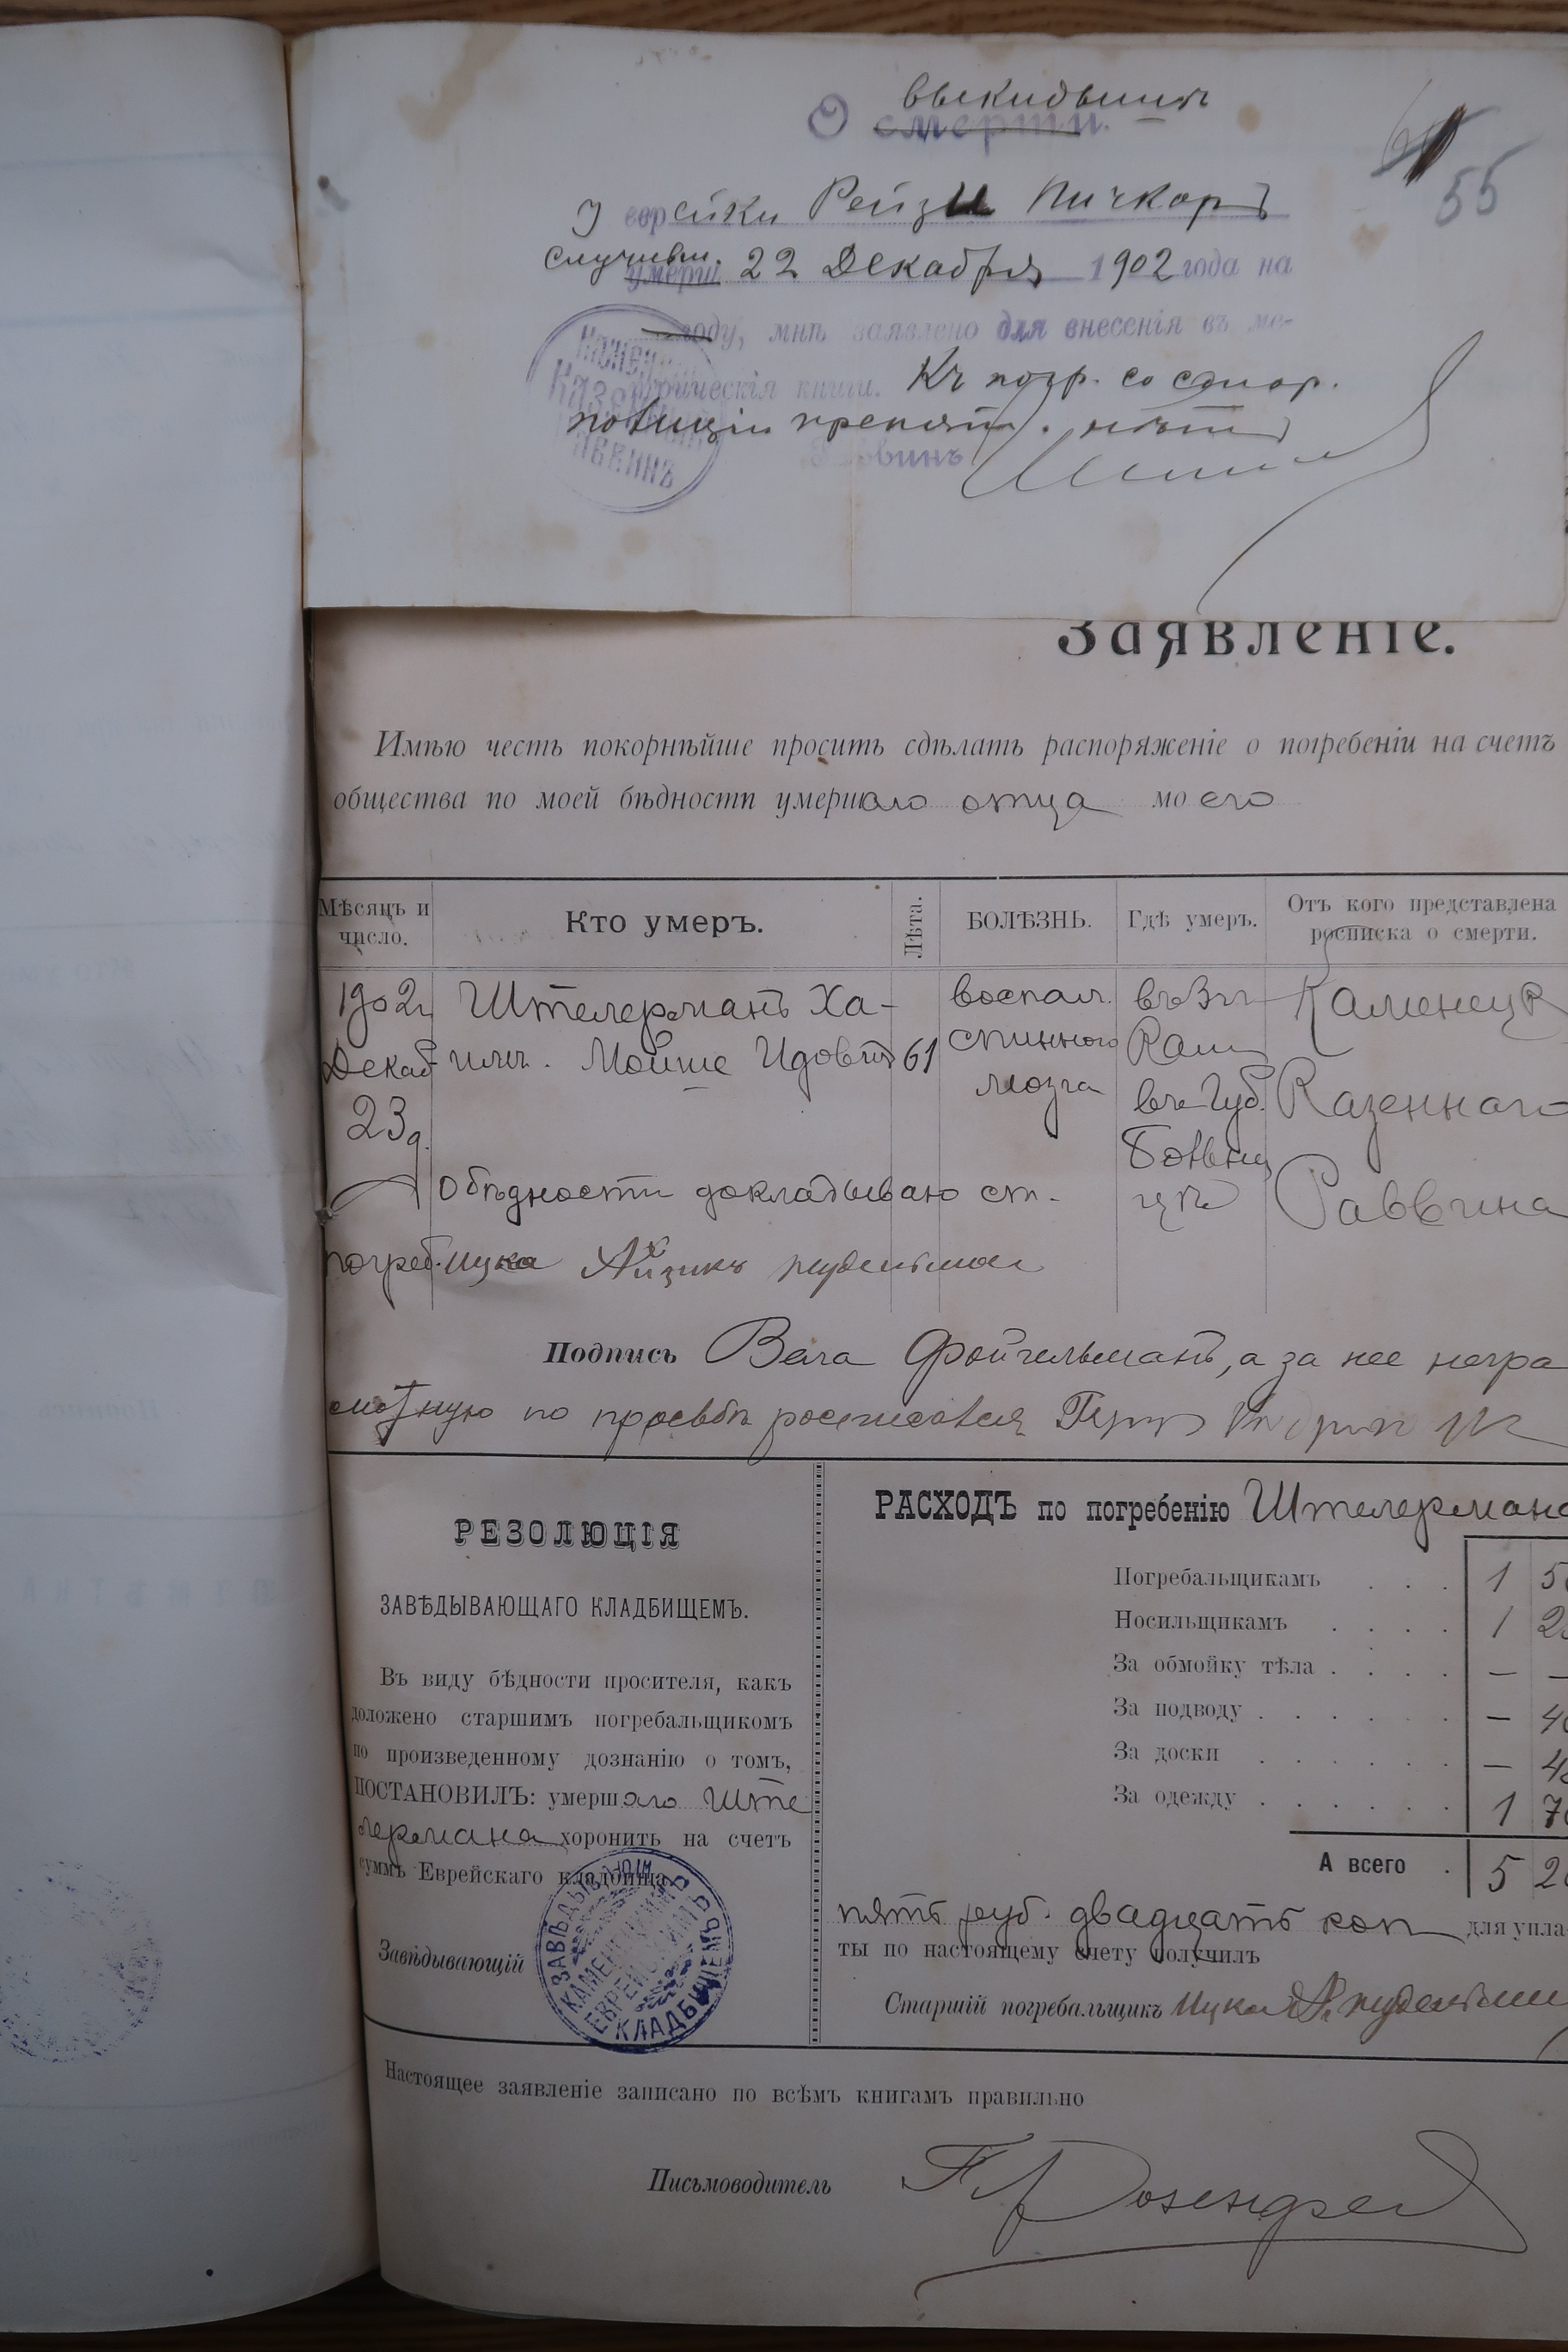 выкидышѣ
О смерти.
55
У еврейки Рейзи Пичкарь
случивш. умерш. 22 Декабря 1902 года на
году, мнѣ заявлено для внесенія въ ме-
трическія книги. Къ погр. со стор.
полиціи препятс. нѣтъ
Раввинъ
Заявленіе.
Имѣю честь покорнѣйше просить сдѣлать распоряженіе о погребеніи на счетъ
общества по моей бѣдности умершаго отца моего
Мѣсяцъ и число. Кто умеръ. Лѣта. БОЛѢЗНЬ. Гдѣ умеръ. Отъ кого представлена росписка о смерти.
1902г Штелерманъ Ха- воспал. въ Каменецк
Декаб имъ. Мойше Идовъ 61 спинного Кам Казеннаго
23д. мозга въ Губ. Больни цѣ Раввина
О бѣдности докладываю ст.
погреб. Ицка Айзикъ
Подпись Вела Фойгельманъ, а за нее негра
мотную по просьбѣ росписался
РЕЗОЛЮЦІЯ
ЗАВѢДЫВАЮЩАГО КЛАДБИЩЕМЪ.
Въ виду бѣдности просителя, какъ
доложено старшимъ погребальщикомъ
по произведенному дознанію о томъ,
ПОСТАНОВИЛЪ: умершаго Ште
лермана хоронить на счетъ
суммъ Еврейскаго кладбища.
Завѣдывающій
ЗАВѢДЫВАЮЩ. КАМЕНЕЦКИМЪ ЕВРЕЙСКИМЪ КЛАДБИЩЕМЪ
РАСХОДЪ по погребенію Штелермана
Погребальщикамъ . . . 1 5
Носильщикамъ . . . . 1 2
За обмойку тѣла . . . . — —
За подводу . . . . . . — 4
За доски . . . . . . — 4
За одежду . . . . . . 1 7
А всего . 5 2
пять руб. двадцать коп для упла-
ты по настоящему счету получилъ
Старшій погребальщикъ Ицка А.
Настоящее заявленіе записано по всѣмъ книгамъ правильно
Письмоводитель Розенфел